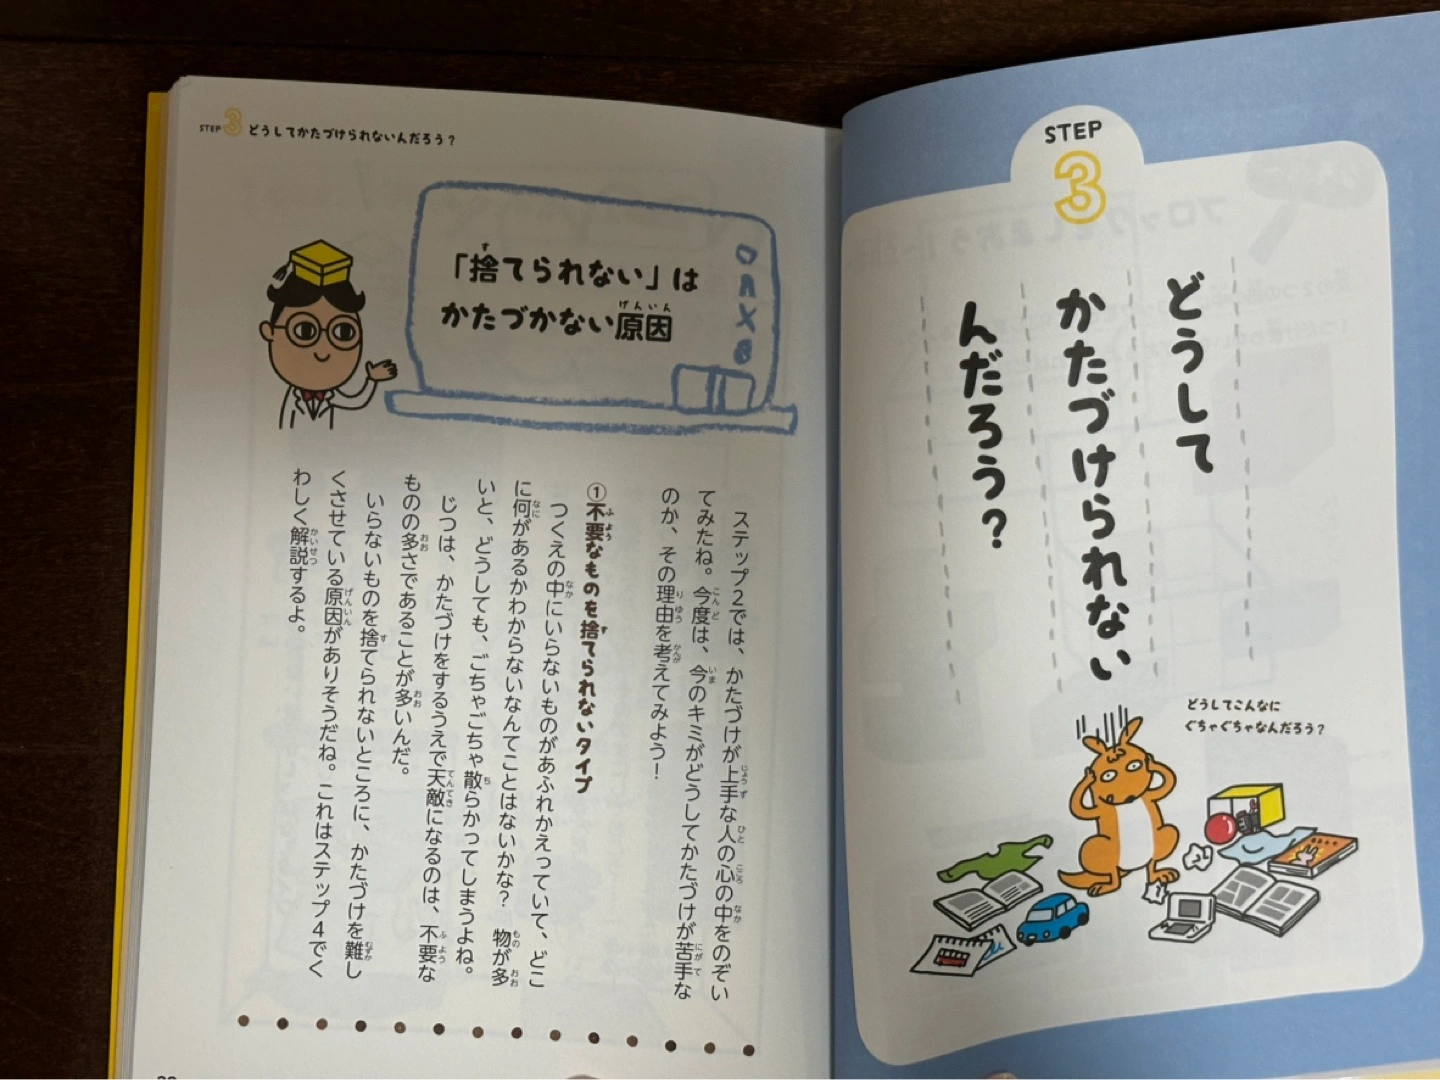 STEP
3
どうして
かたづけられない
んだろう?
どうしてこんなに
ぐちゃぐちゃなんだろう?
STEP 3 どうしてかたづけられないんだろう?
「捨てられない」は
かたづかない原因
ステップ2では、かたづけが上手な人の心の中をのぞい
てみたね。今度は、今のキミがどうしてかたづけが苦手な
のか、その理由を考えてみよう!
①不要なものを捨てられないタイプ
つくえの中にいらないものがあふれかえっていて、どこ
に何があるかわからないなんてことはないかな? 物が多
いと、どうしても、ごちゃごちゃ散らかってしまうよね。
じつは、かたづけをするうえで天敵になるのは、不要な
ものの多さであることが多いんだ。
いらないものを捨てられないところに、かたづけを難し
くさせている原因がありそうだね。これはステップ4でく
わしく解説するよ。